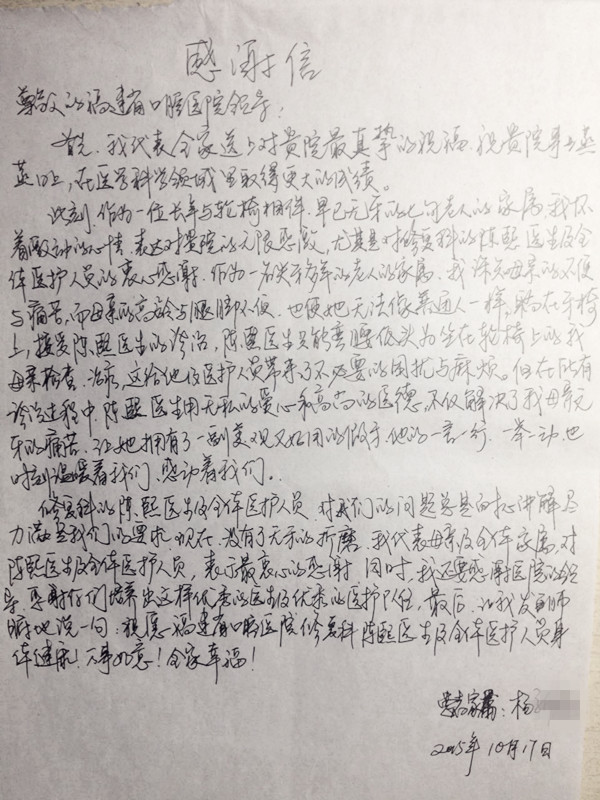 感谢信
尊敬的福建省口腔医院领导:
首先,我代表全家送上对贵院最真挚的祝福,祝贵院事业蒸
蒸日上,在医学科学领域里取得更大的成绩。
此刻,作为一位长年与轮椅相伴,早已无牙的七旬老人的家属,我怀
着激动的心情,表达对贵院的无限感激,尤其是对修复科的陈熙医生及全
体医护人员的衷心感谢.作为一名失牙多年的老人的家属,我深知母亲的不便
与痛苦,而母亲的高龄与腿脚不便,也使她无法像常人一样,躺在牙椅
上,接受陈熙医生的诊治,陈熙医生只能弯腰低头为坐在轮椅上的我
母亲检查、治疗,这给他及医护人员带来了不必要的困扰与麻烦。但在所有
诊治过程中,陈熙医生用无私的爱心和高尚的医德,不仅解决了我母亲无
牙的痛苦,让她拥有了一副美观又好用的假牙,他的一言一行,一举一动,也
时刻温暖着我们、感动着我们。
修复科的陈熙医生及全体医护人员,对我们的问题总是百忙讲解,尽
力满足我们的要求,现在,没有了无牙的折磨,我代表母亲及全体家属,对
陈熙医生及全体医护人员,表示最衷心的感谢!同时,我还要感谢医院的领
导,感谢你们培养出这样优秀的医生及优秀的医护人员,最后,让我发自肺
腑地说一句:祝愿福建省口腔医院修复科陈熙医生及全体医护人员身
体健康!万事如意!全家幸福!
患者家属:杨
2015年10月17日